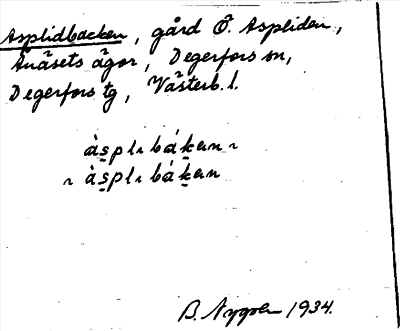 Asplidbacken, gård Ö. Aspliden,
Ånäsets ägor, Degerfors sn,
Degerfors tg, Västerb. l.
àsplɩbákan ~
~ àsplɩbákan
B. Nygren 1934.